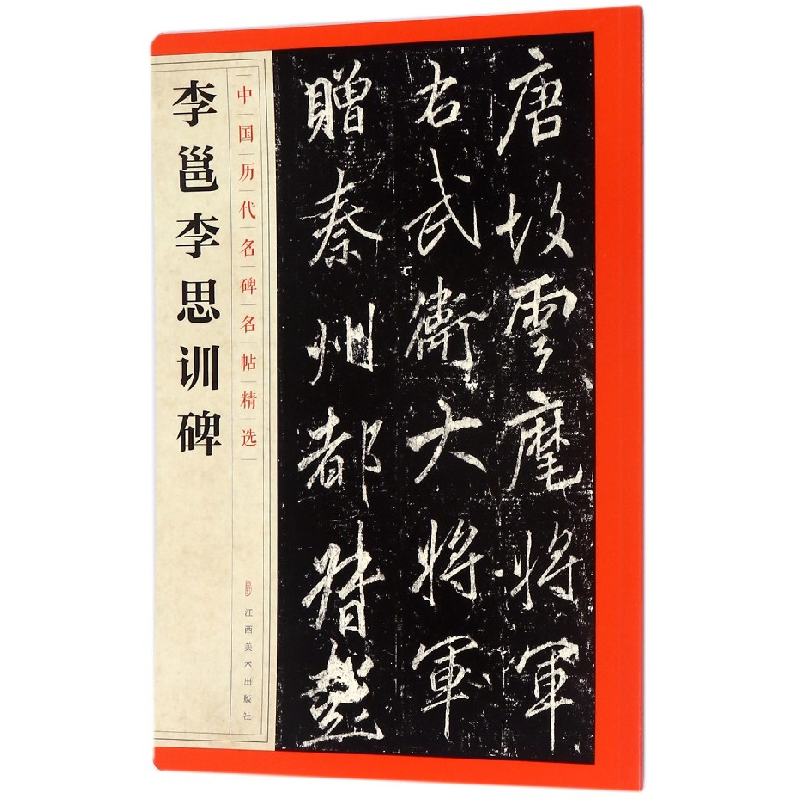 李邕李思训碑
中国历代名碑名帖精选
江西美术出版社
唐故雲麾将軍
右武衛大将軍
贈秦州都督